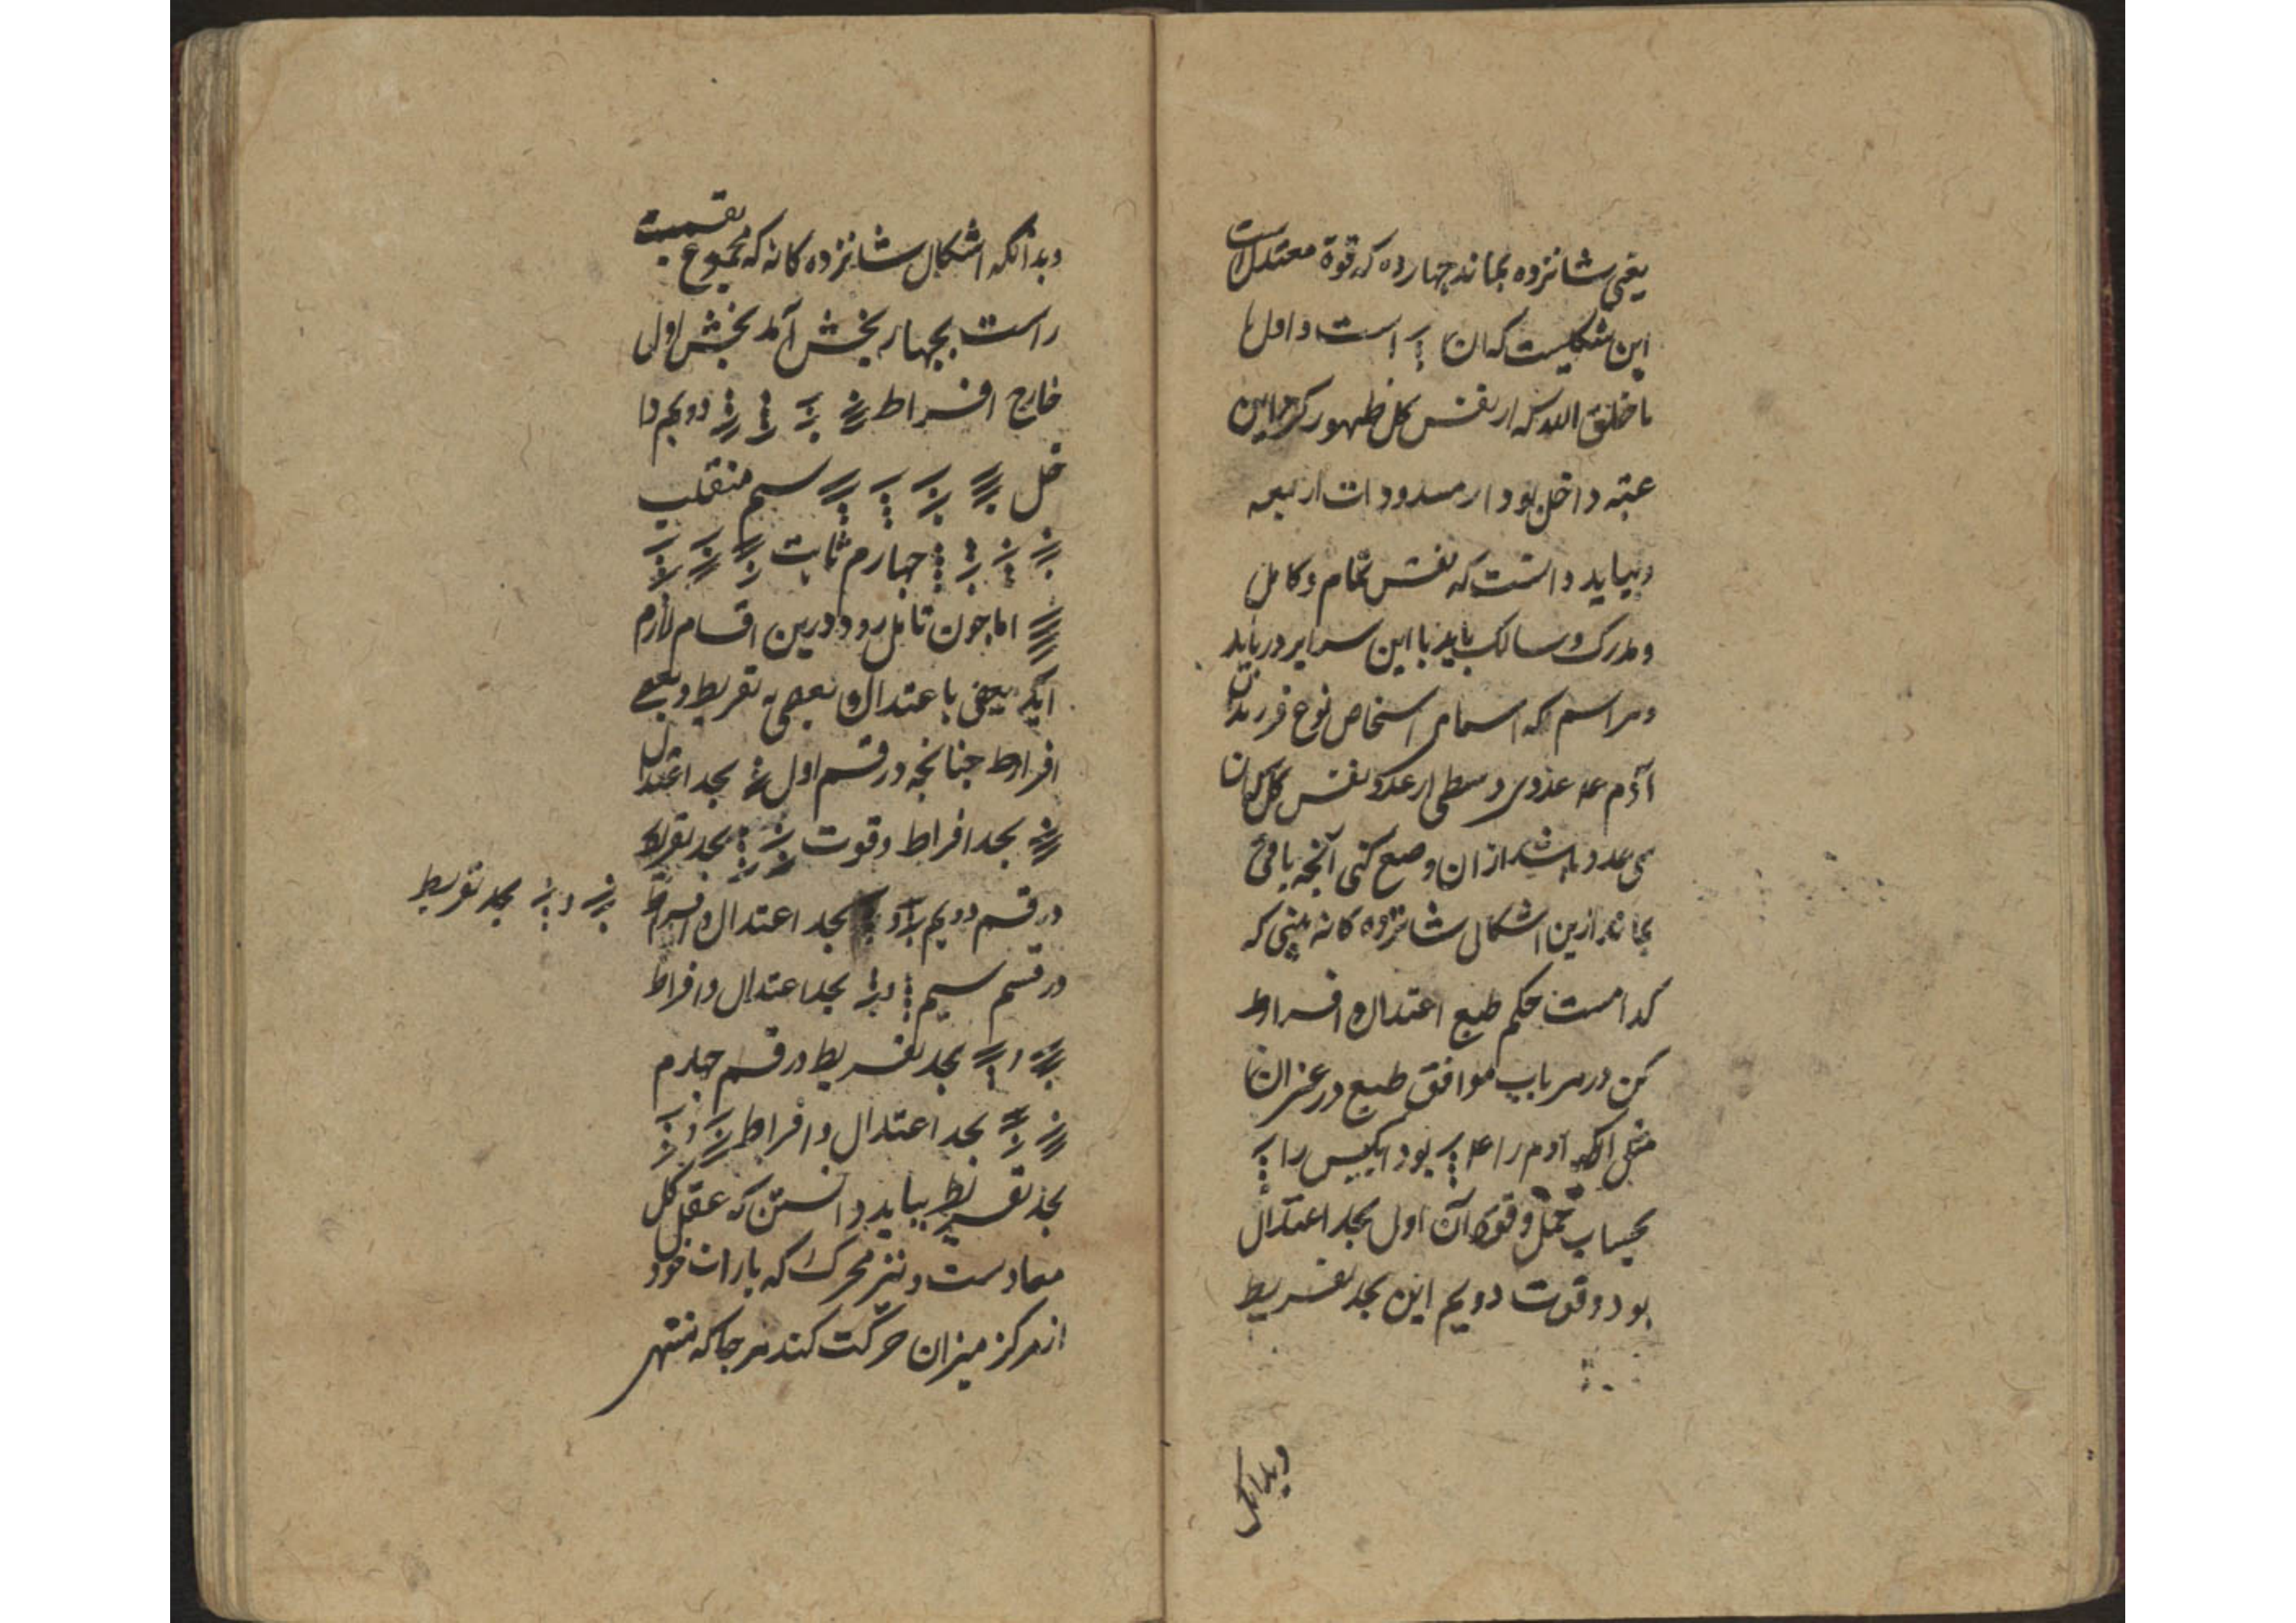 یعنی شانزده بماند چهارده که قوة معتدل است
این شکلیست که ان است و اول
ما خلق الله که از نفس کل ظهور کرد این
عتبه داخل بود از مسدودات اربعه
و بیاید دانست که نفس تمام و کامل
و مدرک و سالک باید با این سرایر دریابد
و هر اسم که اسمای اشخاص نوع فرزندان
آدم
می عدد باشد از ان وضع کنی آنچه باقی
بماند ازین اشکال شانزده کانه بینی که
کدامست حکم طبع اعتدال و افراط
کن در هر باب موافق طبع در
مثل انکه آدم را بود ابلیس را
بحساب جمل و قوة آن اول بحد اعتدال
بود و قوت دویم این بحد تفریط
وبدانکه
وبدانکه اشکال شانزده کانه که مجموع بقسمت
راست بچهار بخش آمد بخش اول
خارج افراط دویم دا
خل سیم منقلب
چهارم ثابت
اما چون تامل رود درین اقسام لازم
اید بعضی باعتدال و بعضی به تفریط و بعضی
افراط چنانچه در قسم اول بحد اعتدال
بحد افراط و قوت بحد تفریط
در قسم دویم بحد اعتدال و افراط
و بحد تفریط
در قسم سیم بحد اعتدال و افراط
بحد تفریط در قسم چهارم
بحد اعتدال و افراط
بحد تفریط بباید دانستن که عقل کل
معادست و نیز محرک را که بارات خود
از مرکز میزان حرکت کند هر جا که منتهی